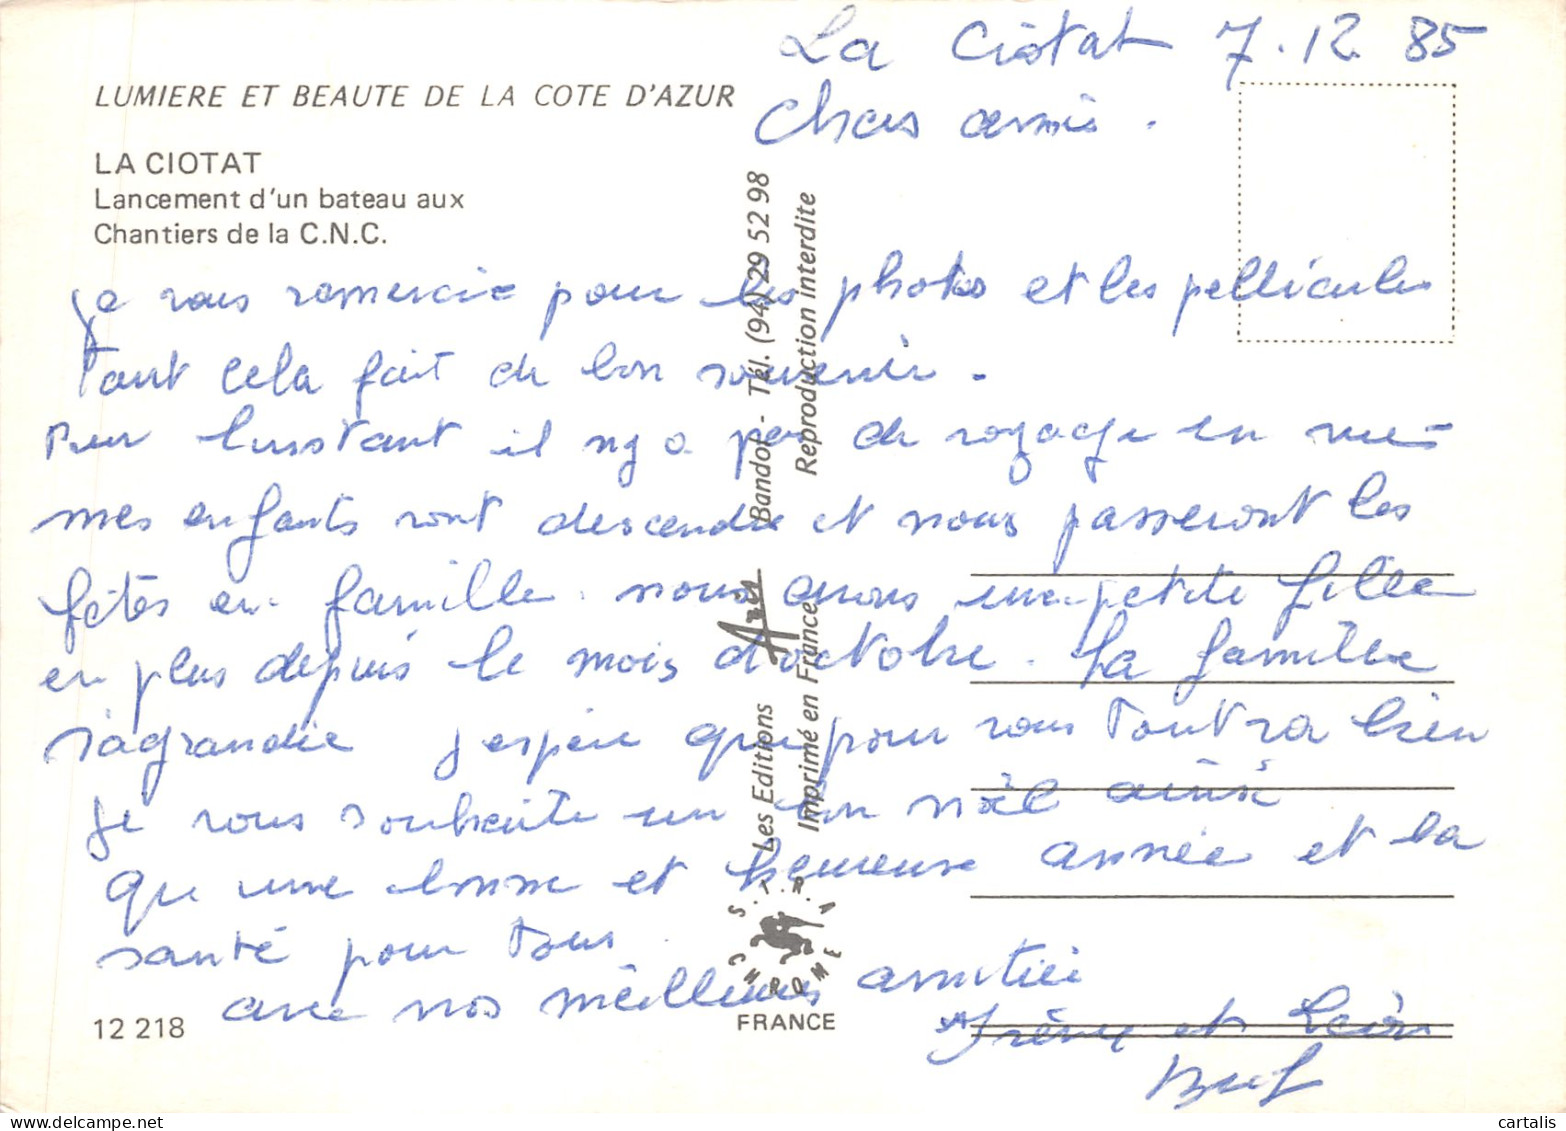 La Ciotat 7.12 85
LUMIERE ET BEAUTE DE LA COTE D'AZUR
Chers amis.
LA CIOTAT
Lancement d'un bateau aux
Chantiers de la C.N.C.
je vous remercie pour les photos et les pellicules
Tout cela fait de bon souvenir.
Pour l'instant il n'y a pas de voyage en vue
mes enfants vont descendre et nous passeront les
fêtes en famille. nous avons une petite fille
en plus depuis le mois d'octobre. La famille
s'agrandie j'espère que pour vous Tout va bien
je vous souhaite un bon noël ainsi
que une bonne et heureuse année et la
santé pour Tous
avec nos meilleures amitiés
Irène et Léon
Les Editions Aris Bandol - Tél. (94) 29 52 98
Imprimé en France Reproduction interdite
S.T.R.A
CHROME
FRANCE
12 218
cartalis